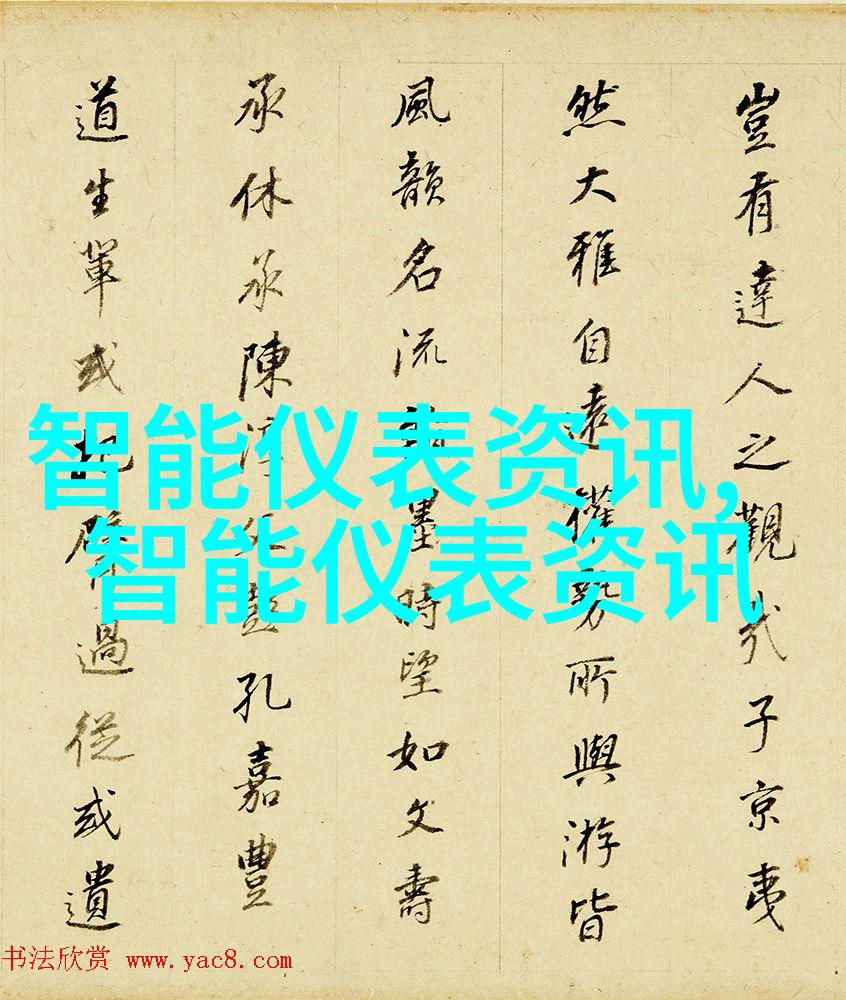 豈有達人之觀哉子京夷
然大雅自遠權勢所與游皆
風韻名流墨時望如文壽
承休承陳淳父彭孔嘉豐
道生輩或把臂過從或遺
智能仪表资讯,
智能仪表资讯
书法欣赏 www.yac8.com